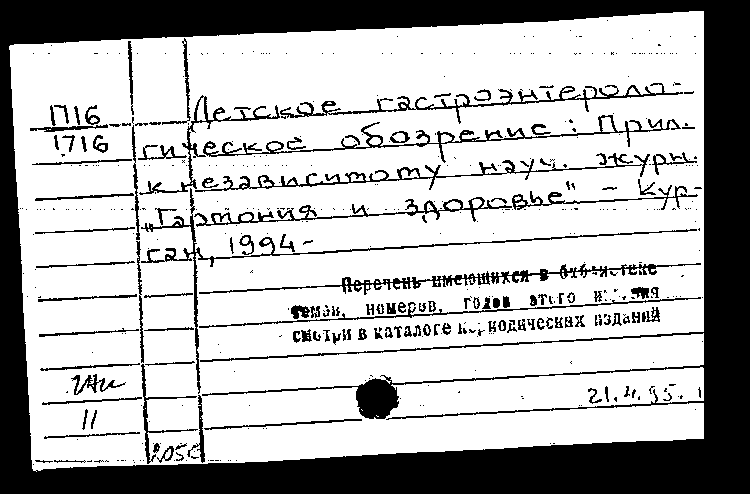 П16
1716
Детское гастроэнтероло-
гическое обозрение: Прил.
к независимому науч. журн.
„Гармония и здоровье". - Кур-
ган, 1994-
Перечень имеющихся в библиотеке
томов, номеров, годов этого издания
смотри в каталоге периодических изданий
21.4.95.
11